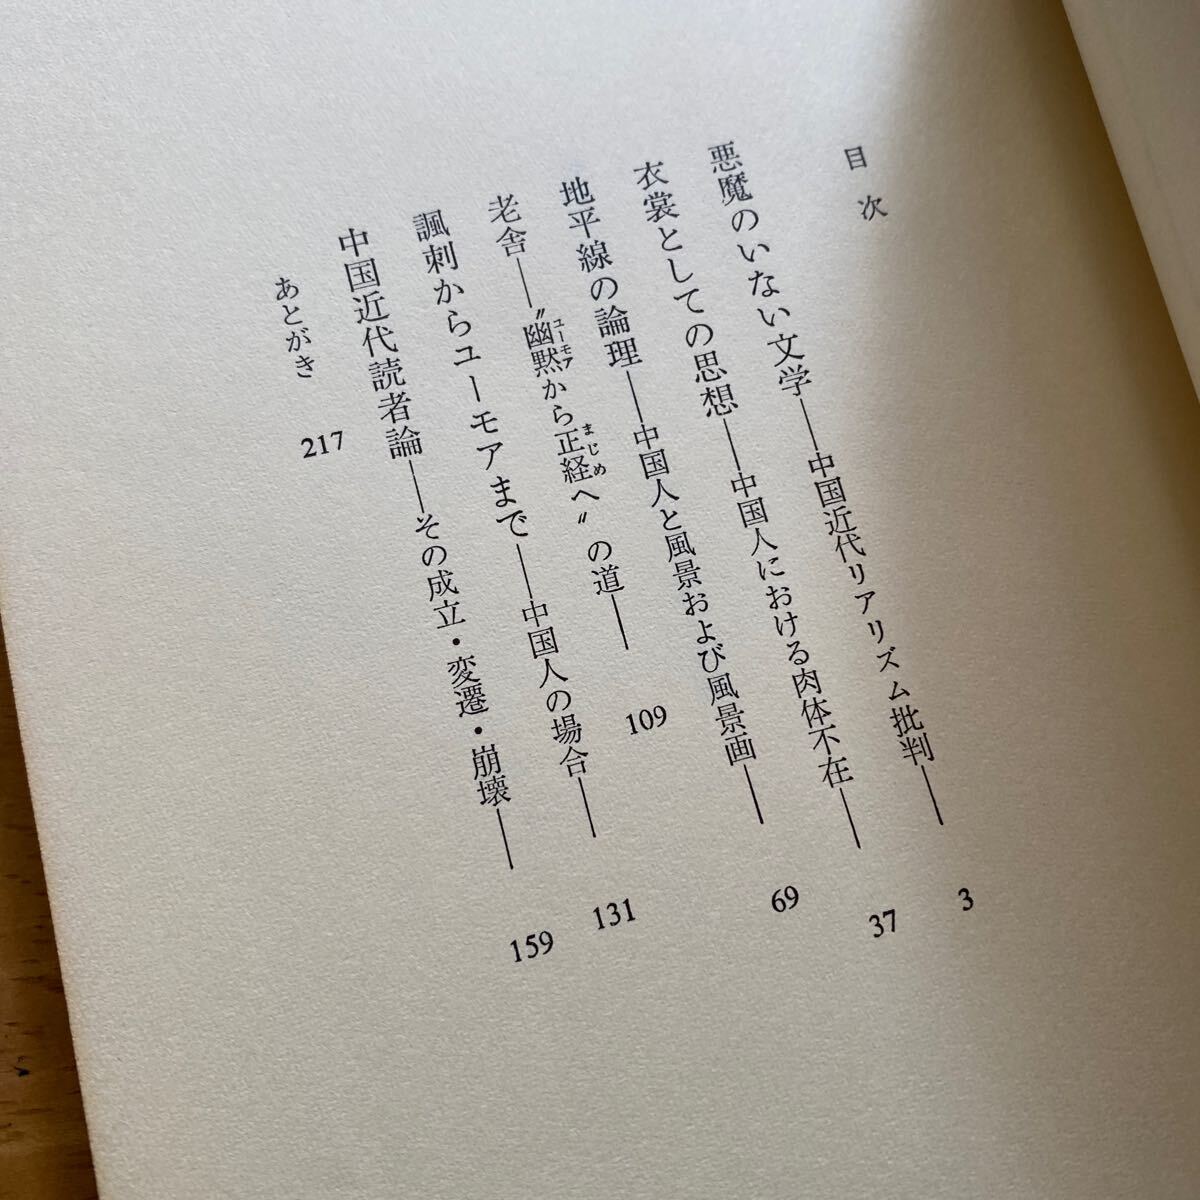 目次
悪魔のいない文学――中国近代リアリズム批判―― 3
衣裳としての思想――中国人における肉体不在―― 37
地平線の論理――中国人と風景および風景画―― 69
老舎――〝幽黙ユーモアから正経まじめへ〟の道―― 109
諷刺からユーモアまで――中国人の場合―― 131
中国近代読者論――その成立・変遷・崩壊―― 159
あとがき 217